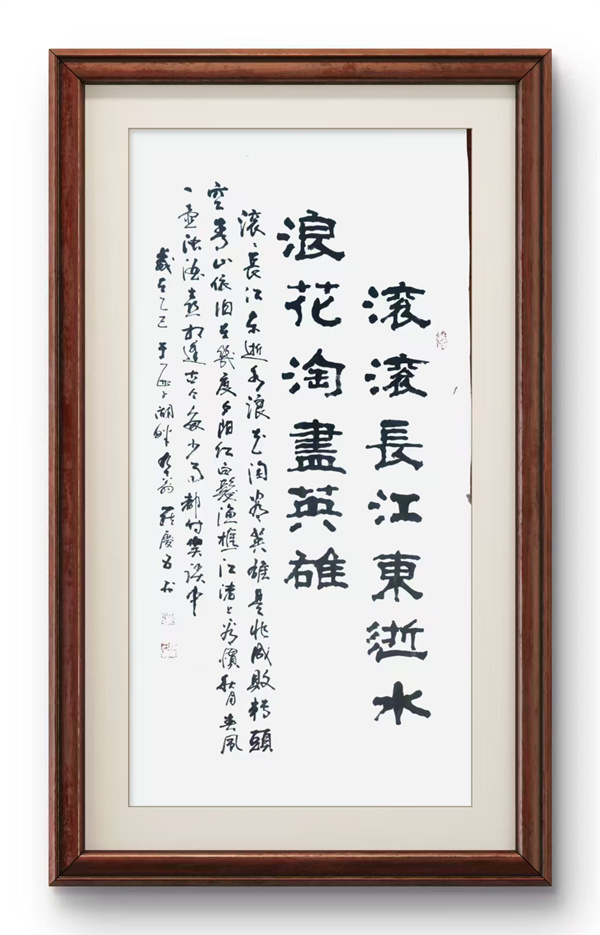 滚滚長江東逝水
浪花淘盡英雄
滚〻長江东逝水浪花淘尽英雄是非成敗轉頭
空青山依旧在幾度夕阳红白髮渔樵江渚上看慣秋月春风
一壶浊酒喜相逢古今多少事都付笑谈中
歲在乙巳于湖畔翁慶书